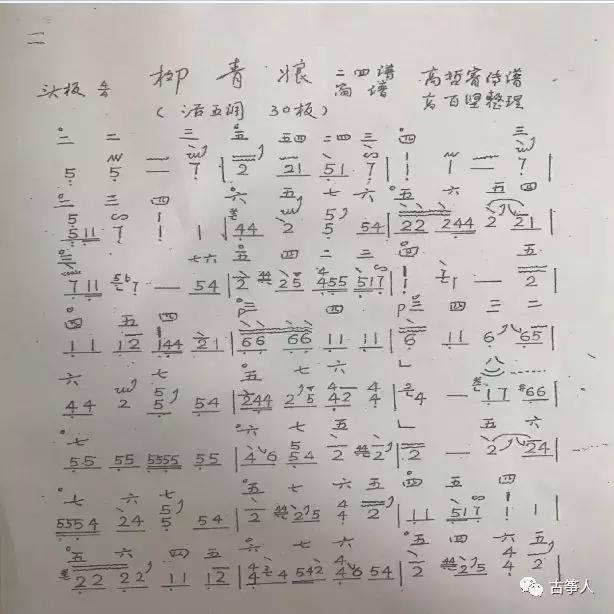 二
头板 4/4 柳青娘 二四谱 简谱 高哲睿传谱 高百坚整理
(活五调 30板)
二 二 三 五 五四 二四 三 四 三
5 5 — 7 | 2 21 51 7 | 1 1 — 7 |
二 三 四 六 五 七 六 五 六 五 四
511 7 1 1 | 44 2 5 54 | 22 244 2 21 |
三 七六 五 四 二 三 四 五
711 7 — 54 | 2 25 455 517 | 1 1 — 2 |
四 五 四 三 四 三 四 三 二
11 12 144 21 | 66 66 11 11 | 6 11 6 65 |
六 七 五 七 六
44 2 5 54 | 244 25 42 4 | 4 — 17 66 |
七 六 七 五 五 六
55 55 5555 55 | 46 54 2 2 | 2 — 2 24 |
七 六 七 五 七 六 五 四 五 四
5554 24 5 54 | 2 25 4 2 | 11 517 1 1 |
五 六 四 五 六 七 六 五 四 六 五
22 22 11 12 | 4 4 542 46 54 | 2 25 4 2
古筝人